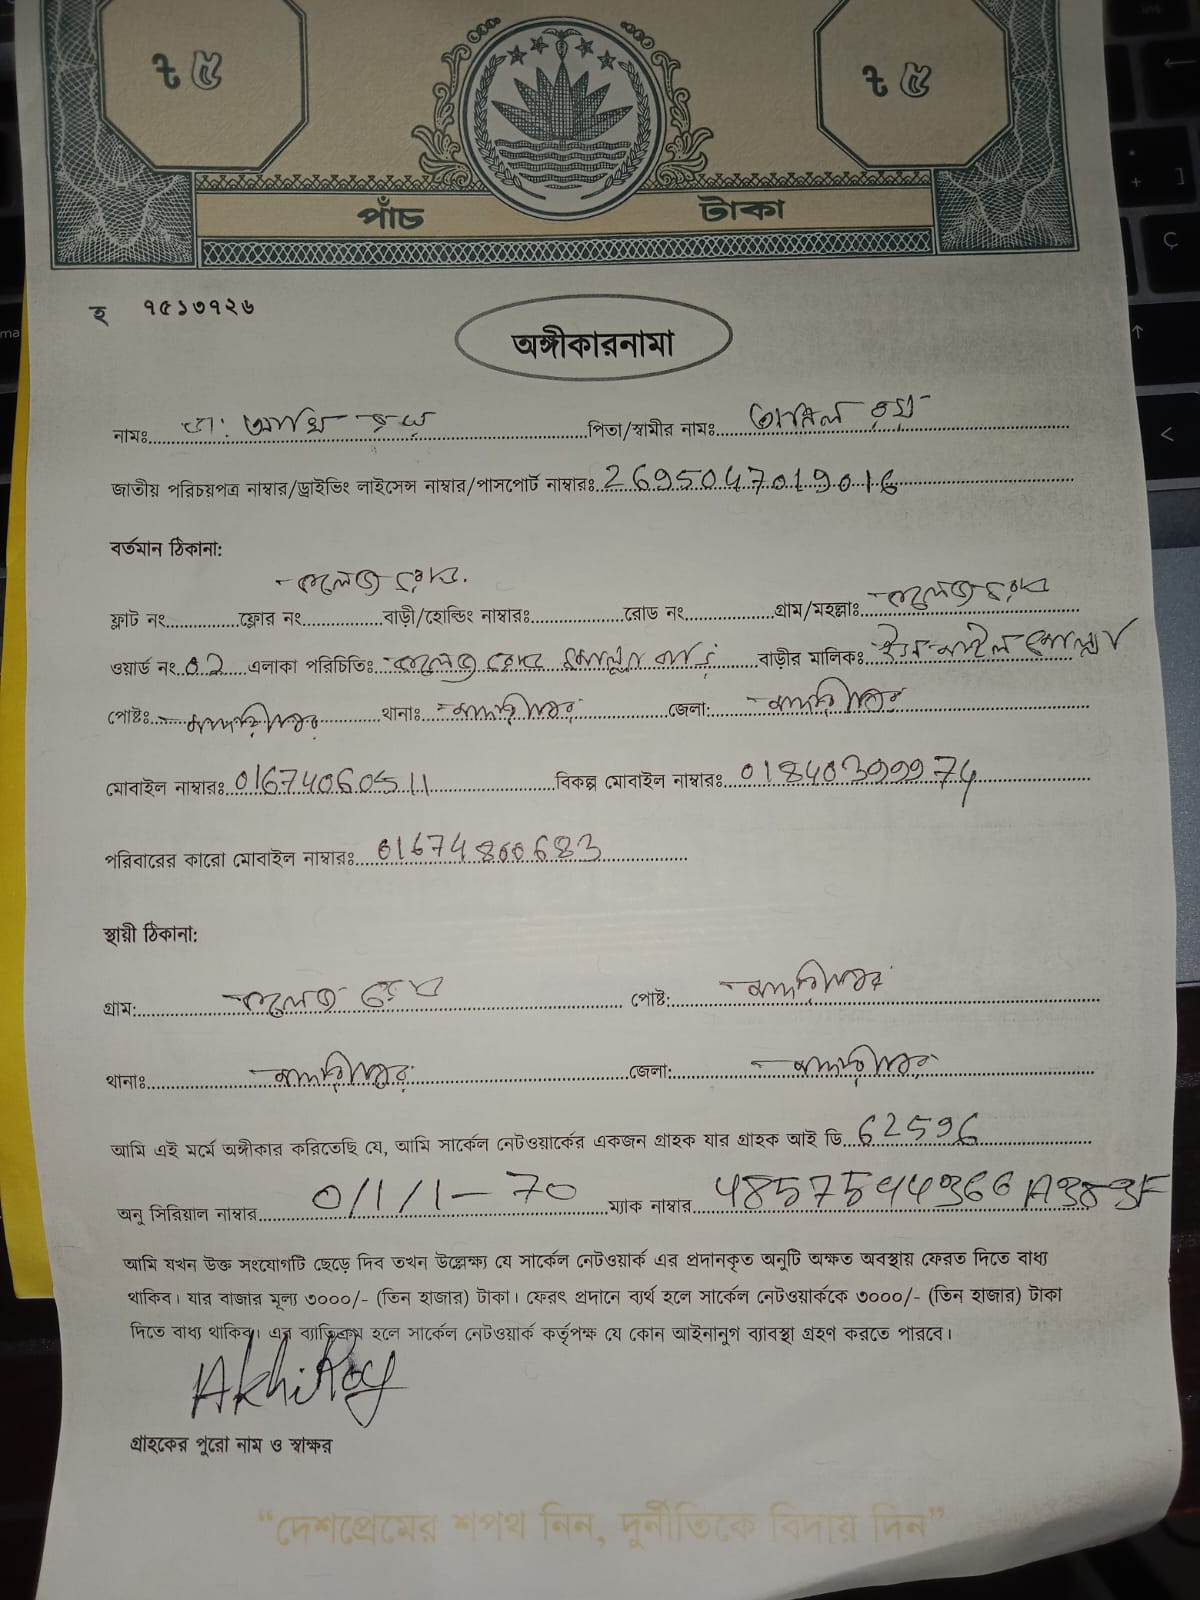 ৳ ৫ ৳ ৫
পাঁচ টাকা
হ ৭৫১৩৭২৬
অঙ্গীকারনামা
নামঃ ডা: আখি রায় পিতা/স্বামীর নামঃ রায়
জাতীয় পরিচয়পত্র নাম্বার/ড্রাইভিং লাইসেন্স নাম্বার/পাসপোর্ট নাম্বারঃ 2695047019016
বর্তমান ঠিকানা:
কলেজ রোড.
ফ্লাট নং ফ্লোর নং বাড়ী/হোল্ডিং নাম্বারঃ রোড নং গ্রাম/মহল্লাঃ কলেজ রোড
ওয়ার্ড নং 02 এলাকা পরিচিতিঃ কলেজ রোড বাড়ি বাড়ীর মালিকঃ
পোষ্টঃ মাদারীপুর থানাঃ মাদারীপুর জেলা: মাদারীপুর
মোবাইল নাম্বারঃ 01674060511 বিকল্প মোবাইল নাম্বারঃ
পরিবারের কারো মোবাইল নাম্বারঃ 01674860683
স্থায়ী ঠিকানা:
গ্রাম: কলেজ রোড পোষ্ট: মাদারীপুর
থানাঃ মাদারীপুর জেলা: মাদারীপুর
আমি এই মর্মে অঙ্গীকার করিতেছি যে, আমি সার্কেল নেটওয়ার্কের একজন গ্রাহক যার গ্রাহক আই ডি 62596
অনু সিরিয়াল নাম্বার 0/1/1-70 ম্যাক নাম্বার
আমি যখন উক্ত সংযোগটি ছেড়ে দিব তখন উল্লেক্ষ্য যে সার্কেল নেটওয়ার্ক এর প্রদানকৃত অনুটি অক্ষত অবস্থায় ফেরত দিতে বাধ্য
থাকিব। যার বাজার মূল্য ৩০০০/- (তিন হাজার) টাকা। ফেরৎ প্রদানে ব্যর্থ হলে সার্কেল নেটওয়ার্ককে ৩০০০/- (তিন হাজার) টাকা
দিতে বাধ্য থাকিব। এর ব্যতিক্রম হলে সার্কেল নেটওয়ার্ক কর্তৃপক্ষ যে কোন আইনানুগ ব্যাবস্থা গ্রহণ করতে পারবে।
Akhi Roy
গ্রাহকের পুরো নাম ও স্বাক্ষর
“দেশপ্রেমের শপথ নিন, দুর্নীতিকে বিদায় দিন”